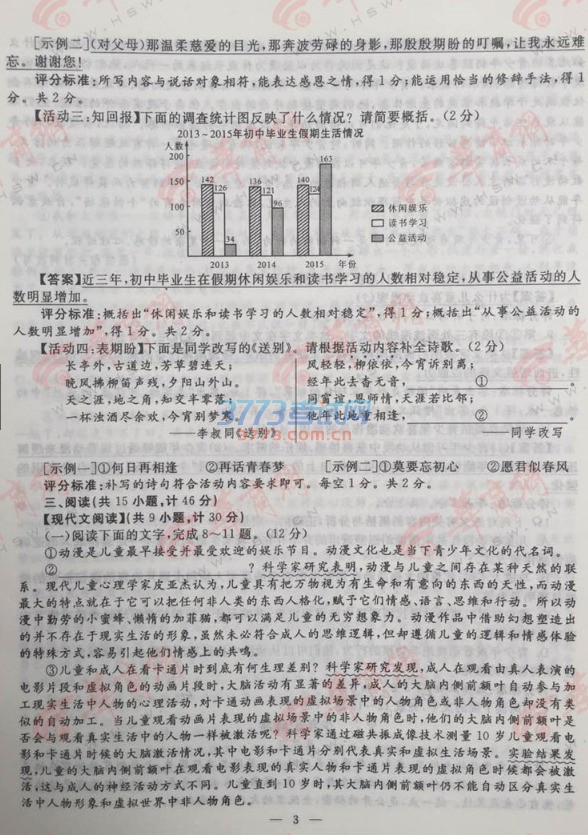 [示例二](对父母)那温柔慈爱的目光,那奔波劳碌的身影,那殷殷期盼的叮嘱,让我永远难
忘。谢谢您!
评分标准:所写内容与说话对象相符,能表达感恩之情,得1分;能运用恰当的修辞手法,得1
分。共2分。
【活动三:知回报】下面的调查统计图反映了什么情况?请简要概括。(2分)
2013~2015年初中毕业生假期生活情况
人数
200
150
100
50
142 126 34
136 121 96
140 124 163
2013 2014 2015 年份
休闲娱乐
读书学习
公益活动
【答案】近三年,初中毕业生在假期休闲娱乐和读书学习的人数相对稳定,从事公益活动的人
数明显增加。
评分标准:概括出“休闲娱乐和读书学习的人数相对稳定”,得1分;概括出“从事公益活动的
人数明显增加”,得1分。共2分。
【活动四:表期盼】下面是同学改写的《送别》。请根据活动内容补全诗歌。(2分)
长亭外,古道边,芳草碧连天;
晚风拂柳笛声残,夕阳山外山。
天之涯,地之角,知交半零落;
一杯浊酒尽余欢,今宵别梦寒。
——李叔同《送别》
风轻轻,柳依依,今宵诉别离;
经年此去杳无音, ① 。
同窗谊,恩师情,天涯若比邻;
他年此地重相逢, ② 。
——同学改写
3773考试网
3773.com.cn
[示例一]①何日再相逢 ②再话青春梦 [示例二]①莫要忘初心 ②愿君似春风
评分标准:补写的诗句符合活动内容要求即可。每空1分。共2分。
三、阅读(共15小题,计46分)
【现代文阅读】(共9小题,计30分)
(一)阅读下面的文字,完成8~11题。(12分)
①动漫是儿童最早接受并最受欢迎的娱乐节目。动漫文化也是当下青少年文化的代名词。
② ?科学家研究表明,动漫与儿童之间存在某种天然的联
系。现代儿童心理学家皮亚杰认为,儿童具有把万物视为有生命和有意向的东西的天性,而动漫
最大的特点就在于它可以把任何非人类的东西人格化,赋予它们情感、语言、思维和行动。所以动
漫中勤劳的小蜜蜂、懒惰的加菲猫,都可以满足儿童的无穷想象力。动漫作品中借助幻想塑造出
的并不存在于现实生活的形象,虽然未必符合成人的思维逻辑,但却遵循儿童的逻辑和情感体验
的特殊方式,容易引起他们情感上的共鸣。
③儿童和成人在看卡通片时到底有何生理差别?科学家研究发现,成人在观看由真人表演的
电影片段和虚拟角色的动画片段时,大脑活动有显著的差异,成人的大脑内侧前额叶自动参与加
工现实生活中人物的心理活动,对卡通动画表现的虚拟场景中的人物角色或非人物角色却没有类
似的自动加工。当儿童观看动画片表现的虚拟场景中的非人物角色时,他们的大脑内侧前额叶是
否会与观看真实生活中的人物一样被激活呢?科学家通过磁共振成像技术测量10岁儿童观看电
影和卡通片时候的大脑激活情况,其中电影和卡通片分别代表真实和虚拟生活场景。实验结果发
现,儿童的大脑内侧前额叶在观看电影表现的真实人物和卡通片表现的虚拟角色时候都会被激
活,这与成人的神经活动方式不同。儿童直到10岁时,其大脑内侧前额叶仍不能自动区分真实生
活中人物形象和虚拟世界中非人物角色。
— 3 —